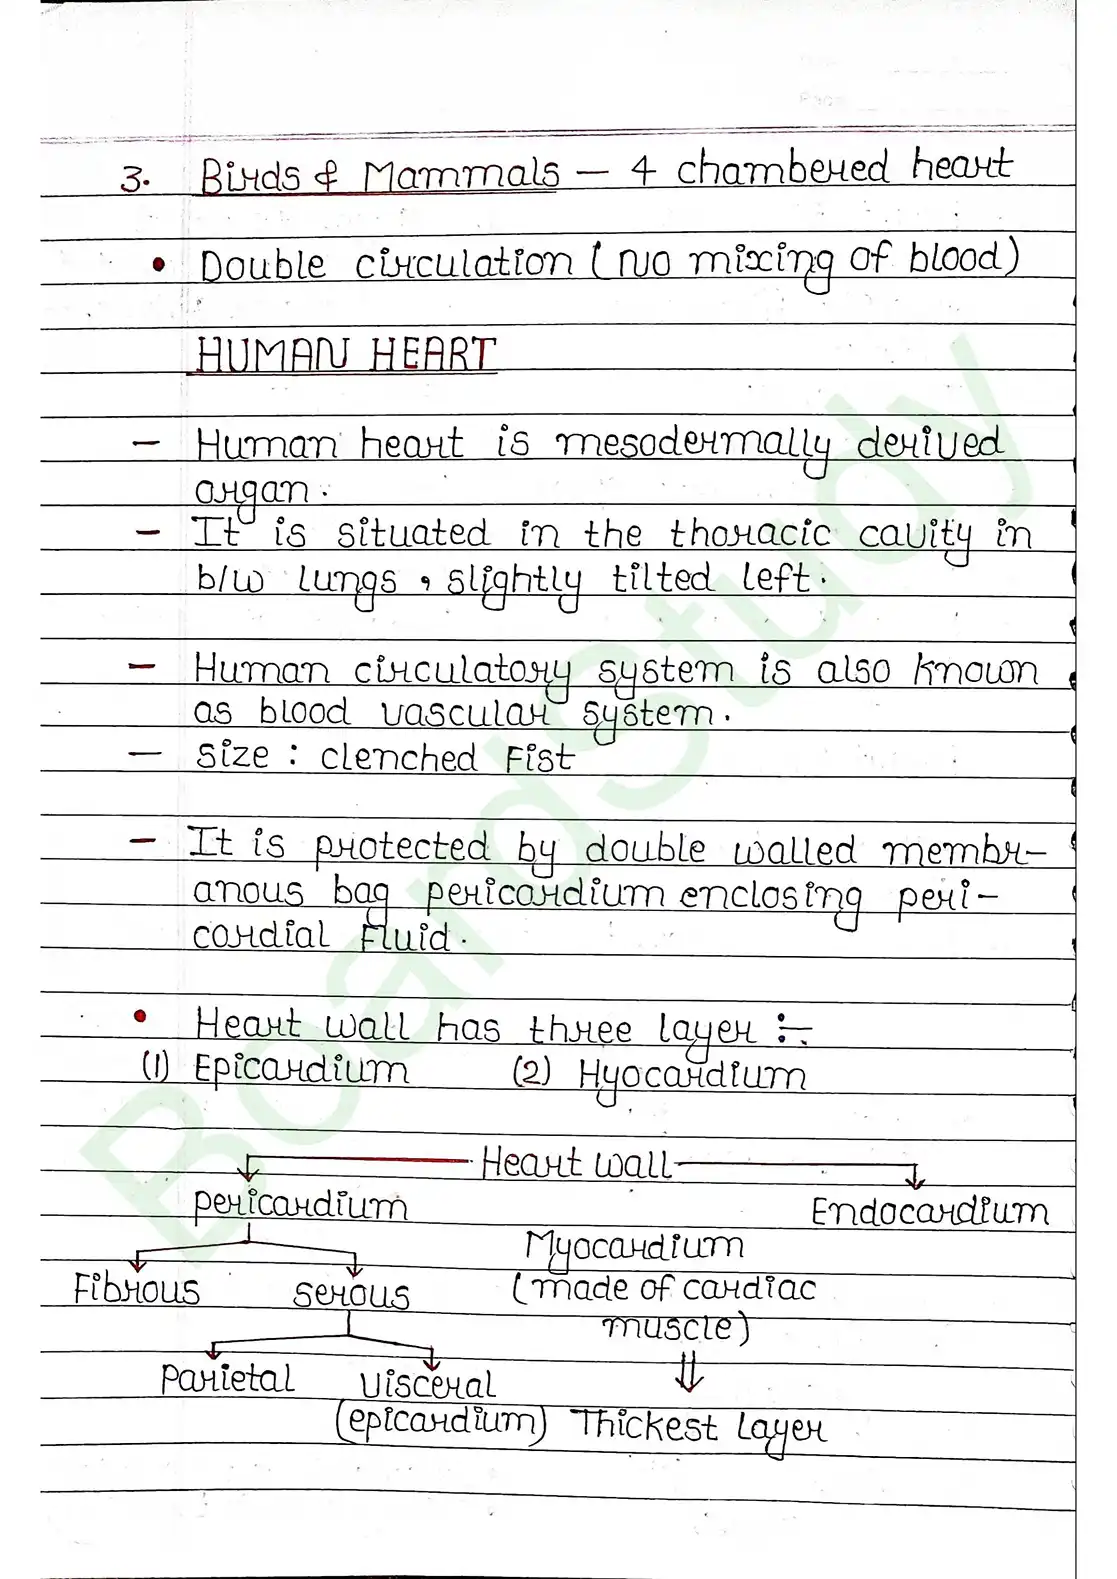 3. Birds & Mammals – 4 chambered heart
• Double circulation (No mixing of blood)
HUMAN HEART
– Human heart is mesodermally derived
organ.
– It is situated in the thoracic cavity in
b/w lungs, slightly tilted left.
– Human circulatory system is also known
as blood vascular system.
– Size : clenched Fist
– It is protected by double walled membr-
anous bag pericardium enclosing peri-
cordial Fluid.
• Heart wall has three layer :-
(1) Epicardium (2) Hyocardium
Heart wall
pericardium Endocardium
Myocardium
Fibrous serous (made of cardiac
muscle)
Parietal Visceral
(epicardium) Thickest Layer
BoardStudy